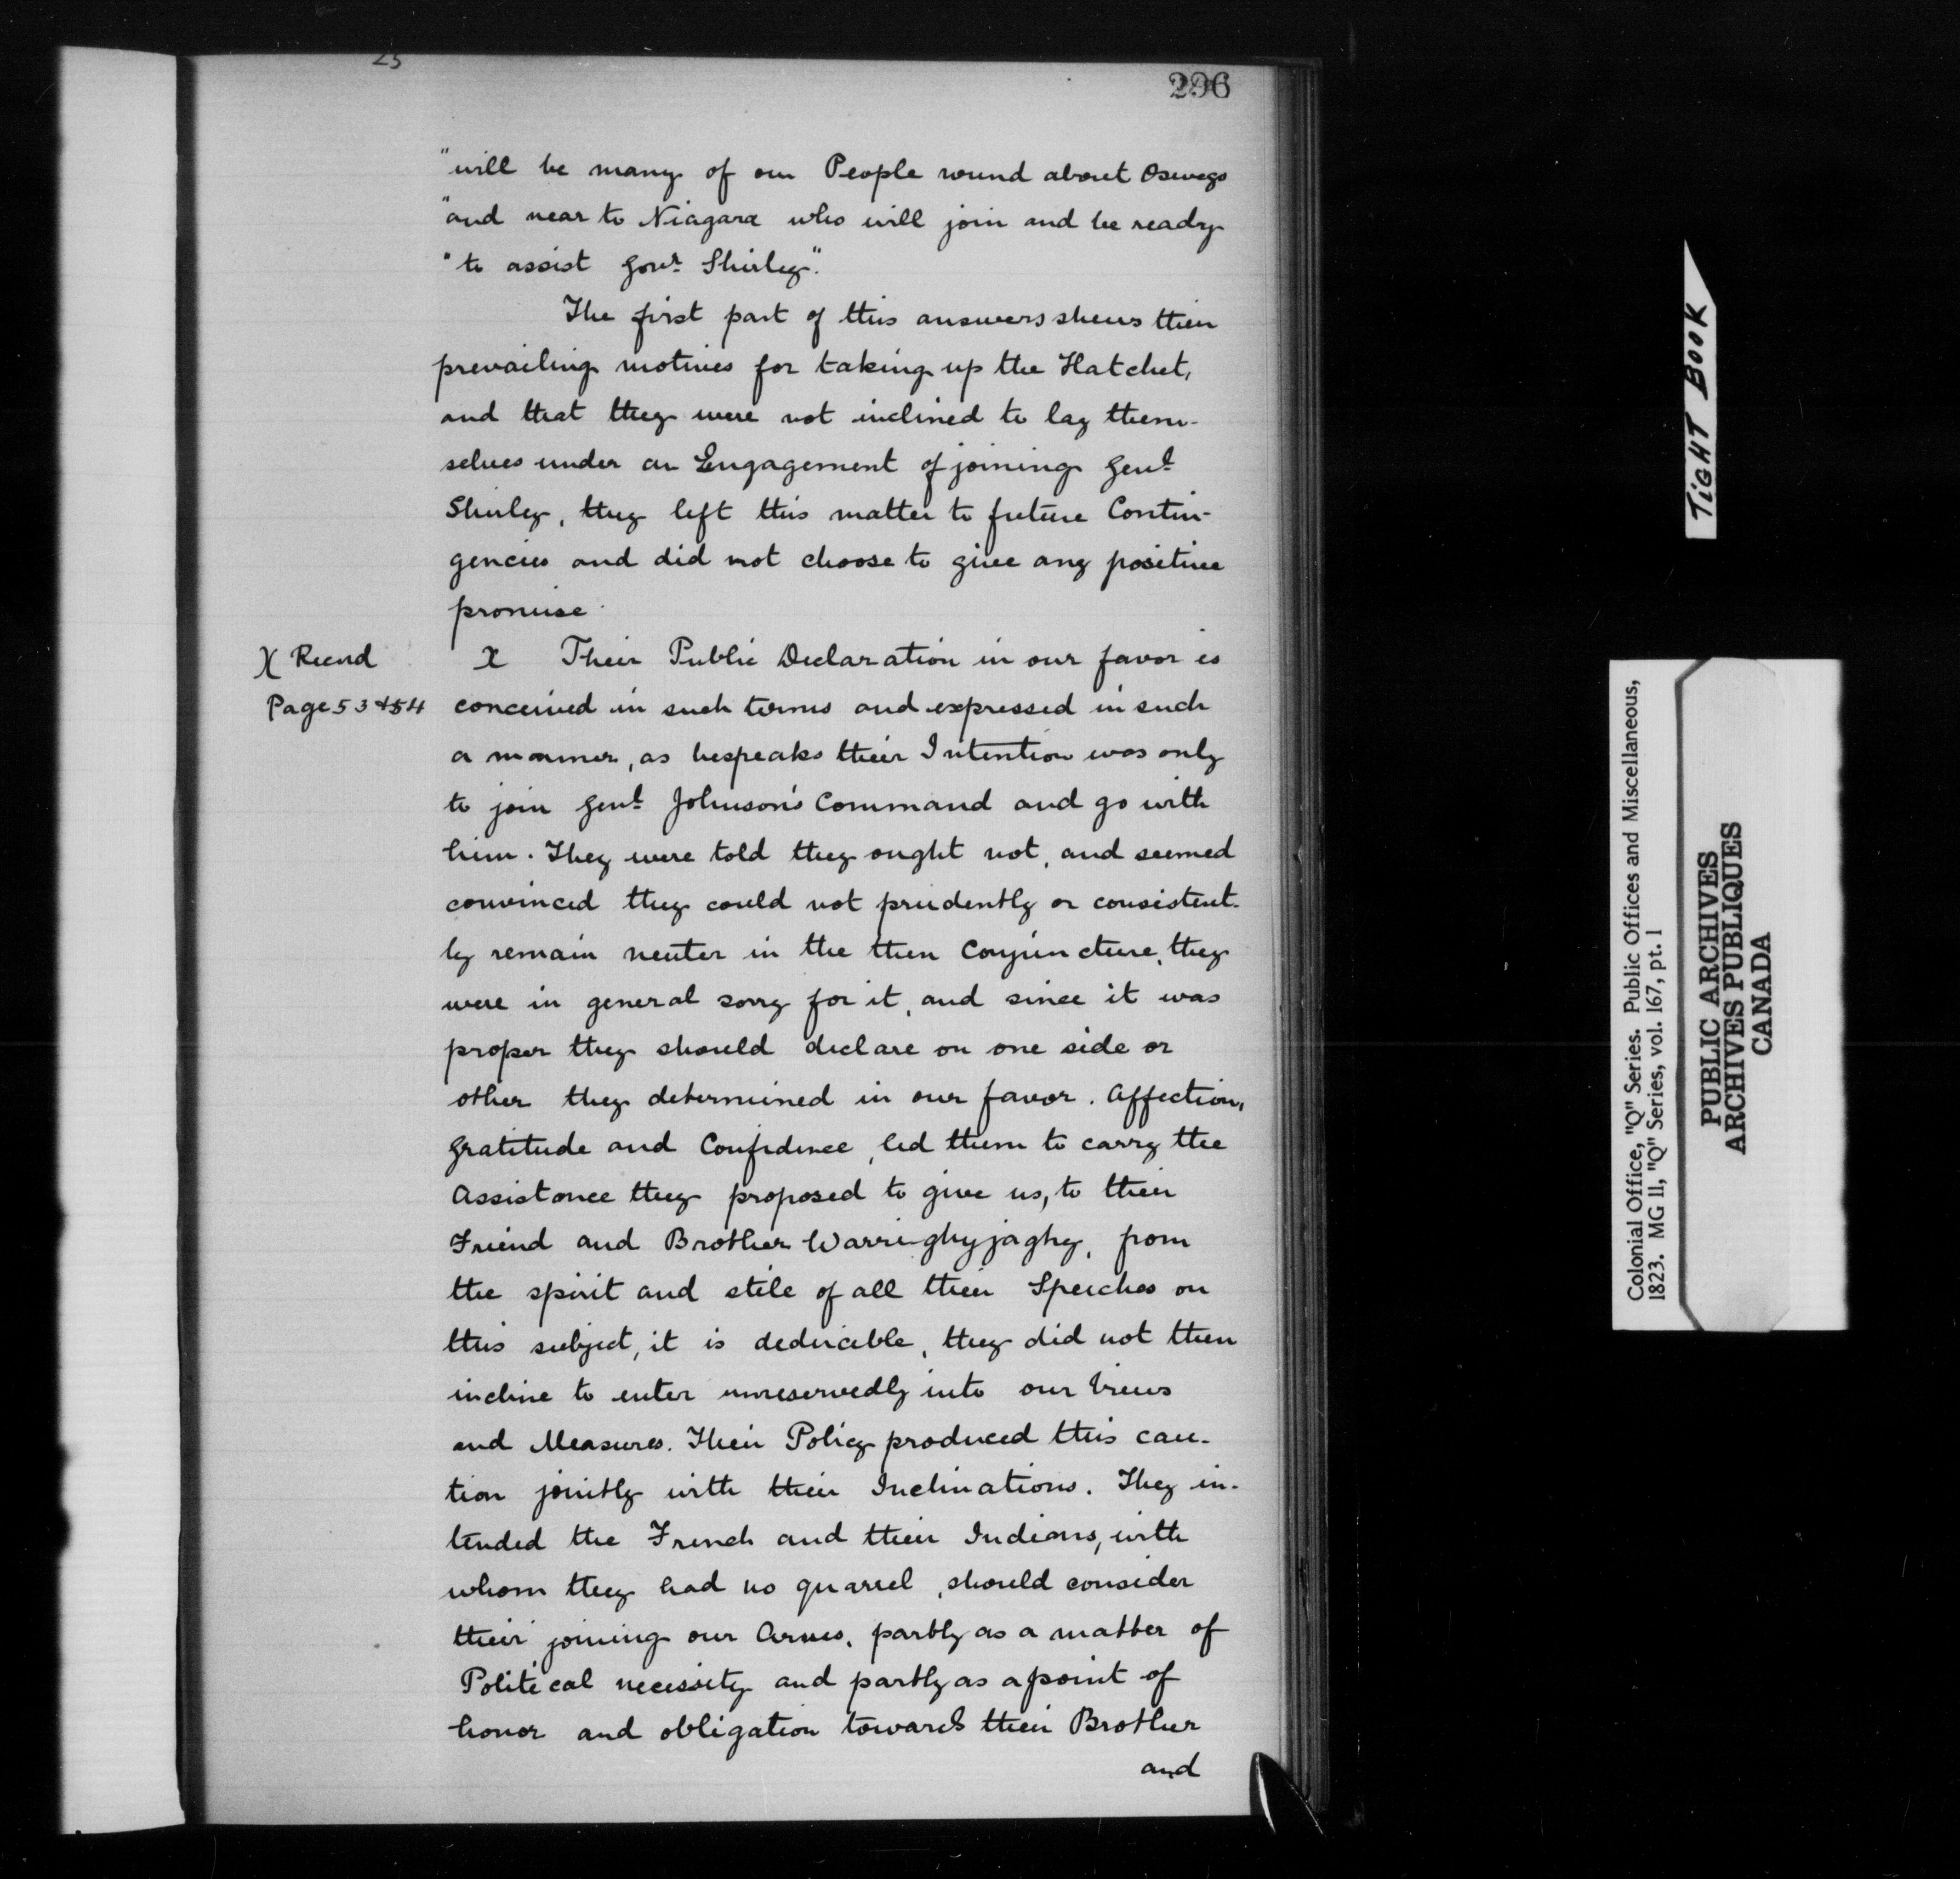 25
296
"will be many of our People round about Oswego
"and near to Niagara who will join and be ready
"to assist Govr. Shirley".
The first part of this answers shews their
prevailing motives for taking up the Hatchet,
and that they were not inclined to lay them-
selves under an Engagement of joining Genl.
Shirley, they left this matter to future Contin-
gencies and did not choose to give any positive
promise.
X Record
Page 53 & 54
X Their Public Declaration in our favor is
conceived in such terms and expressed in such
a manner, as bespeaks their Intention was only
to join Genl. Johnson's Command and go with
him. They were told they ought not, and seemed
convinced they could not prudently or consistent-
ly remain neuter in the then Conjuncture, they
were in general sorry for it, and since it was
proper they should declare on one side or
other they determined in our favor. Affection,
Gratitude and Confidence, led them to carry the
Assistance they proposed to give us, to their
Friend and Brother Warrighyjaghy, from
the spirit and stile of all their Speeches on
this subject, it is deducible, they did not then
incline to enter unreservedly into our Views
and Measures. Their Policy produced this cau-
tion jointly with their Inclinations. They in-
tended the French and their Indians, with
whom they had no quarrel, should consider
their joining our Arms, partly as a matter of
Political necessity and partly as a point of
honor and obligation towards their Brother
and
TIGHT BOOK
Colonial Office, "Q" Series. Public Offices and Miscellaneous,
1823. MG 11, "Q" Series, vol. 167, pt. 1
PUBLIC ARCHIVES
ARCHIVES PUBLIQUES
CANADA